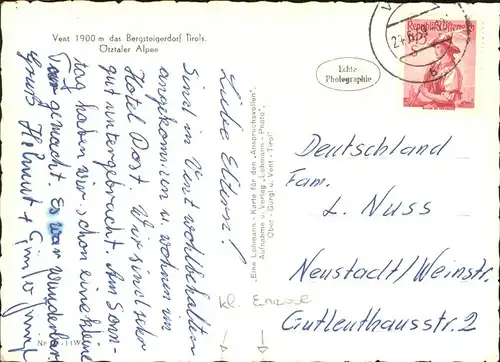 Vent 1900 m das Bergsteigerdorf Tirols.
Ötztaler Alpen
Echte
Photographie
Republik Österreich
Liebe Eltern!
Sind in Vent wohlbehalten
angekommen u. wohnen im
Hotel Post. Wir sind sehr
gut untergebracht. Am Sonn-
tag haben wir schon eine kleine
Tour gemacht. Es war wunderbar
Gruß Helmut +
„Eine Lohmann-Karte für den Anspruchsvollen".
Aufnahme u. Verlag „Lohmann-Photo",
Ober-Gurgl u. Vent-Tirol"
Deutschland
Fam.
L. Nuss
Neustadt/Weinstr.
Gutleuthausstr. 2
kl.